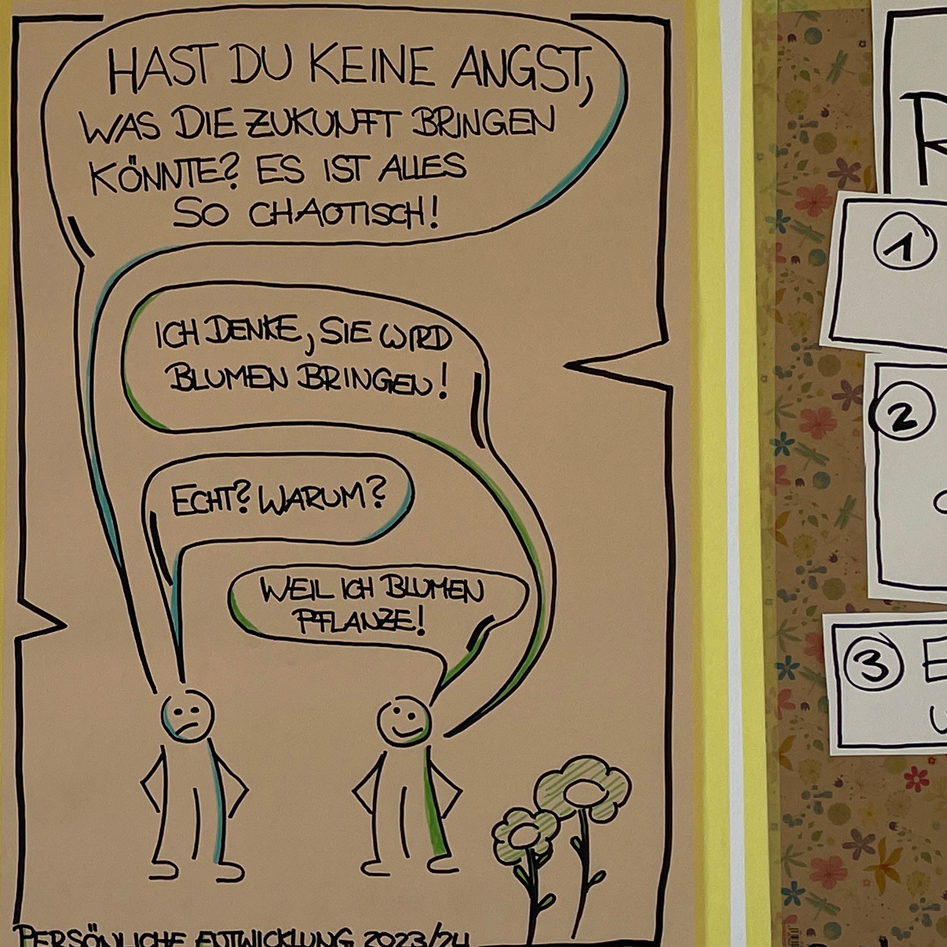 HAST DU KEINE ANGST,
WAS DIE ZUKUNFT BRINGEN
KÖNNTE? ES IST ALLES
SO CHAOTISCH!
ICH DENKE, SIE WIRD
BLUMEN BRINGEN!
ECHT? WARUM?
WEIL ICH BLUMEN
PFLANZE!
PERSÖNLICHE ENTWICKLUNG 2023/24
1
2
3